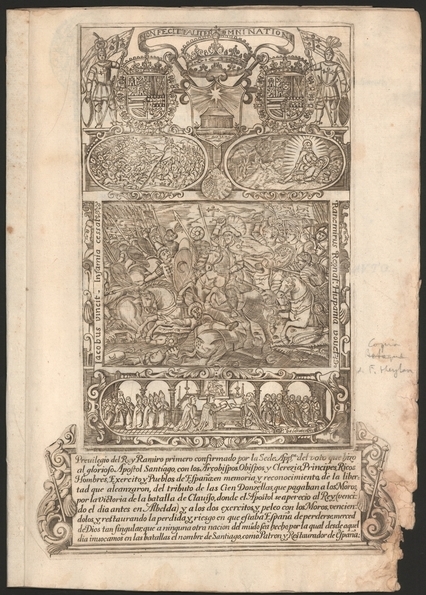 NON FECIT TALITER OMNI NATIONI
Jacobus vincit. Infamia cessat.
Ranimirus vovet. Hispania
Preuilegio del Rey Ramiro primero confirmado por la Sede Appca. del voto que hizo
al glorioso Apostol Santiago, con los Arçobispos Obispos y Clerezia, Principes, Ricos
Hombres, Exercito y Pueblos de España en memoria y reconocimiento de la liber
tad que alcanzaron, del tributo de las Cien Donzellas que pagaban a los Moros,
por la Victoria de la batalla de Clauijo, donde el Apostol se aperecio al Rey (venci
do el dia antes en Albelda) y a los dos exercitos, y peleo con los Moros, vencien
dolos, y restaurando la perdida, y riesgo en que estaba España de perderse: merced
de Dios tan singular, que a ninguna otra nacion del mũdo se à hecho por la qual desde aquel
dia inuocamos en las batallas el nombre de Santiago, como Patron, y Restaurador de España.
Copia
F. Heylan